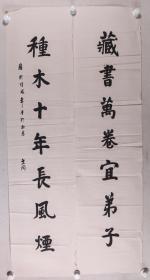 藏書萬卷宜弟子
種木十年長風煙